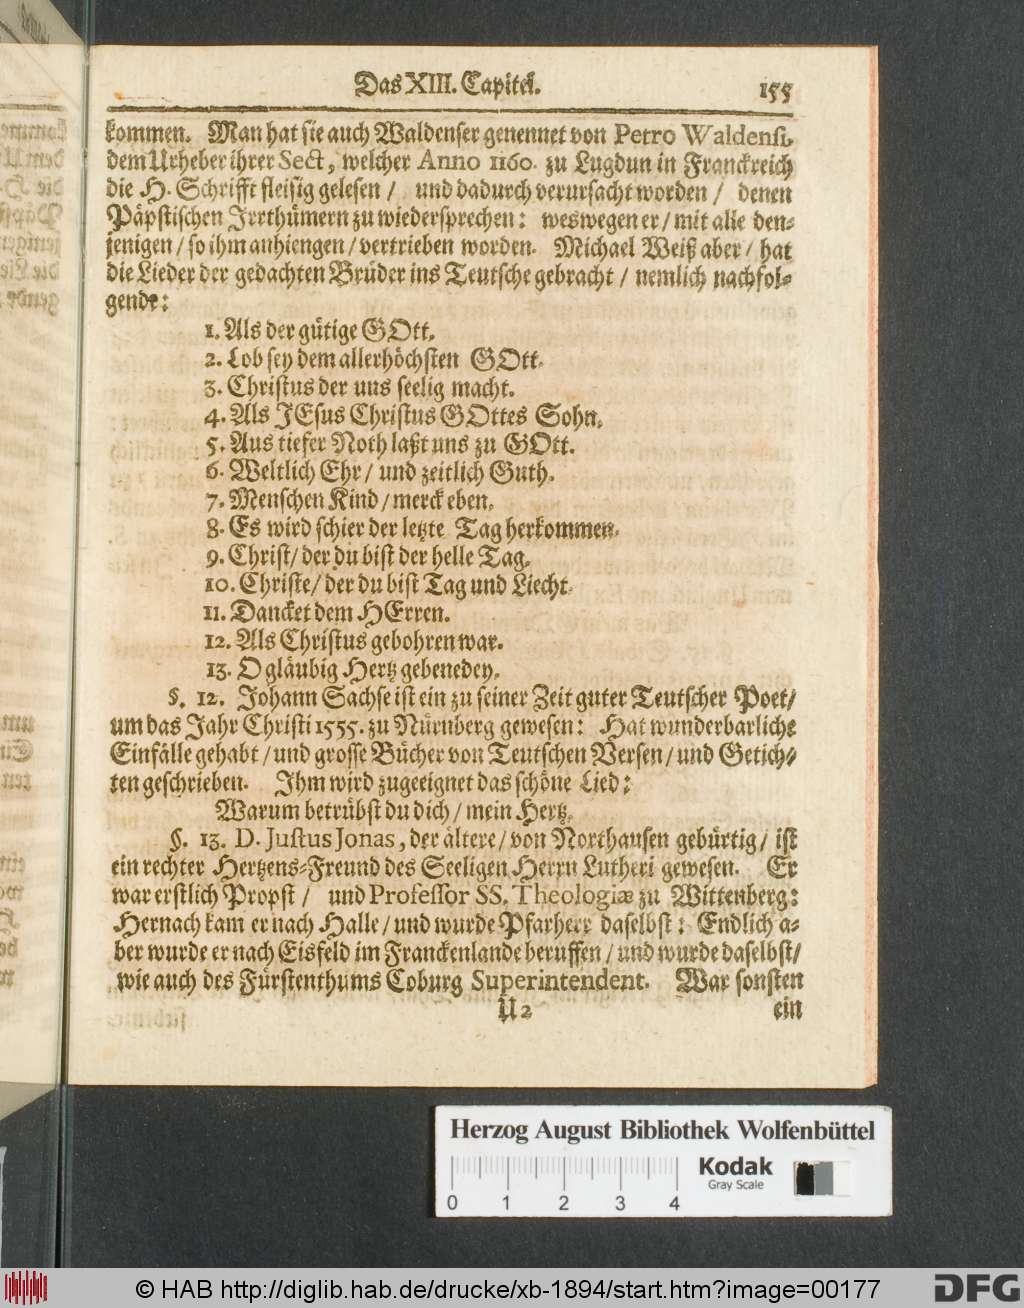 Das XIII. Capitel. 155
kommen. Man hat sie auch Waldenser genennet von Petro Waldensi,
dem Urheber ihrer Sect, welcher Anno 1160. zu Lugdun in Franckreich
die H. Schrifft fleisig gelesen / und dadurch verursacht worden / denen
Päpstischen Irrthümern zu wiedersprechen: weswegen er / mit alle den-
jenigen / so ihm anhiengen / vertrieben worden. Michael Weiß aber / hat
die Lieder der gedachten Brüder ins Teutsche gebracht / nemlich nachfol-
gende:
1. Als der gütige GOtt.
2. Lob sey dem allerhöchsten GOtt.
3. Christus der uns seelig macht.
4. Als JEsus Christus GOttes Sohn.
5. Aus tiefer Noth laßt uns zu GOtt.
6. Weltlich Ehr / und zeitlich Guth.
7. Menschen Kind / merck eben.
8. Es wird schier der letzte Tag herkommen.
9. Christ / der du bist der helle Tag.
10. Christe / der du bist Tag und Liecht.
11. Dancket dem HErren.
12. Als Christus gebohren war.
13. O gläubig Hertz gebenedey.
§. 12. Johann Sachse ist ein zu seiner Zeit guter Teutscher Poet /
um das Jahr Christi 1555. zu Nürnberg gewesen: Hat wunderbarliche
Einfälle gehabt / und grosse Bücher von Teutschen Versen / und Getich-
ten geschrieben. Ihm wird zugeeignet das schöne Lied:
Warum betrübst du dich / mein Hertz.
§. 13. D. Justus Jonas, der ältere / von Northausen gebürtig / ist
ein rechter Hertzens-Freund des Seeligen Herrn Lutheri gewesen. Er
war erstlich Propst / und Professor SS. Theologiæ zu Wittenberg:
Hernach kam er nach Halle / und wurde Pfarherr daselbst: Endlich a-
ber wurde er nach Eisfeld im Franckenlande beruffen / und wurde daselbst /
wie auch des Fürstenthums Coburg Superintendent. War sonsten
U 2 ein
Herzog August Bibliothek Wolfenbüttel
Kodak
Gray Scale
0 1 2 3 4
© HAB http://diglib.hab.de/drucke/xb-1894/start.htm?image=00177
DFG